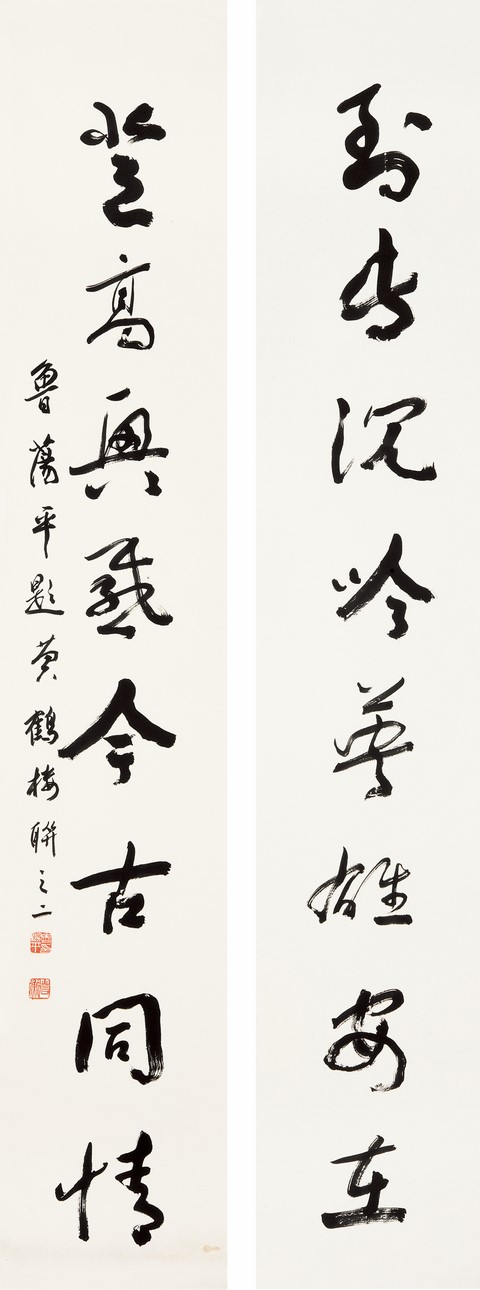 到 沉吟英雄安在
登高興感今古同情
魯蕩平題黃鶴樓聯之二